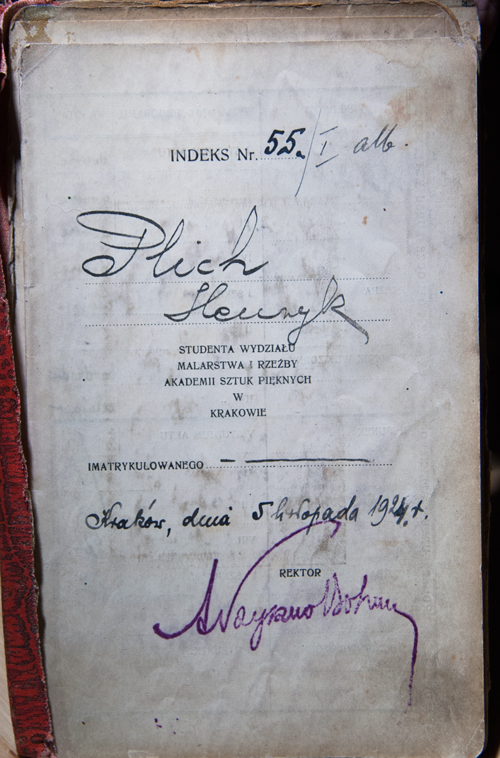 INDEKS Nr. 55./I alb.
Plich
Henryk
STUDENTA WYDZIAŁU
MALARSTWA I RZEŹBY
AKADEMII SZTUK PIĘKNYCH
W
KRAKOWIE
IMATRYKULOWANEGO — —
Kraków, dnia 5 listopada 1924. r.
REKTOR